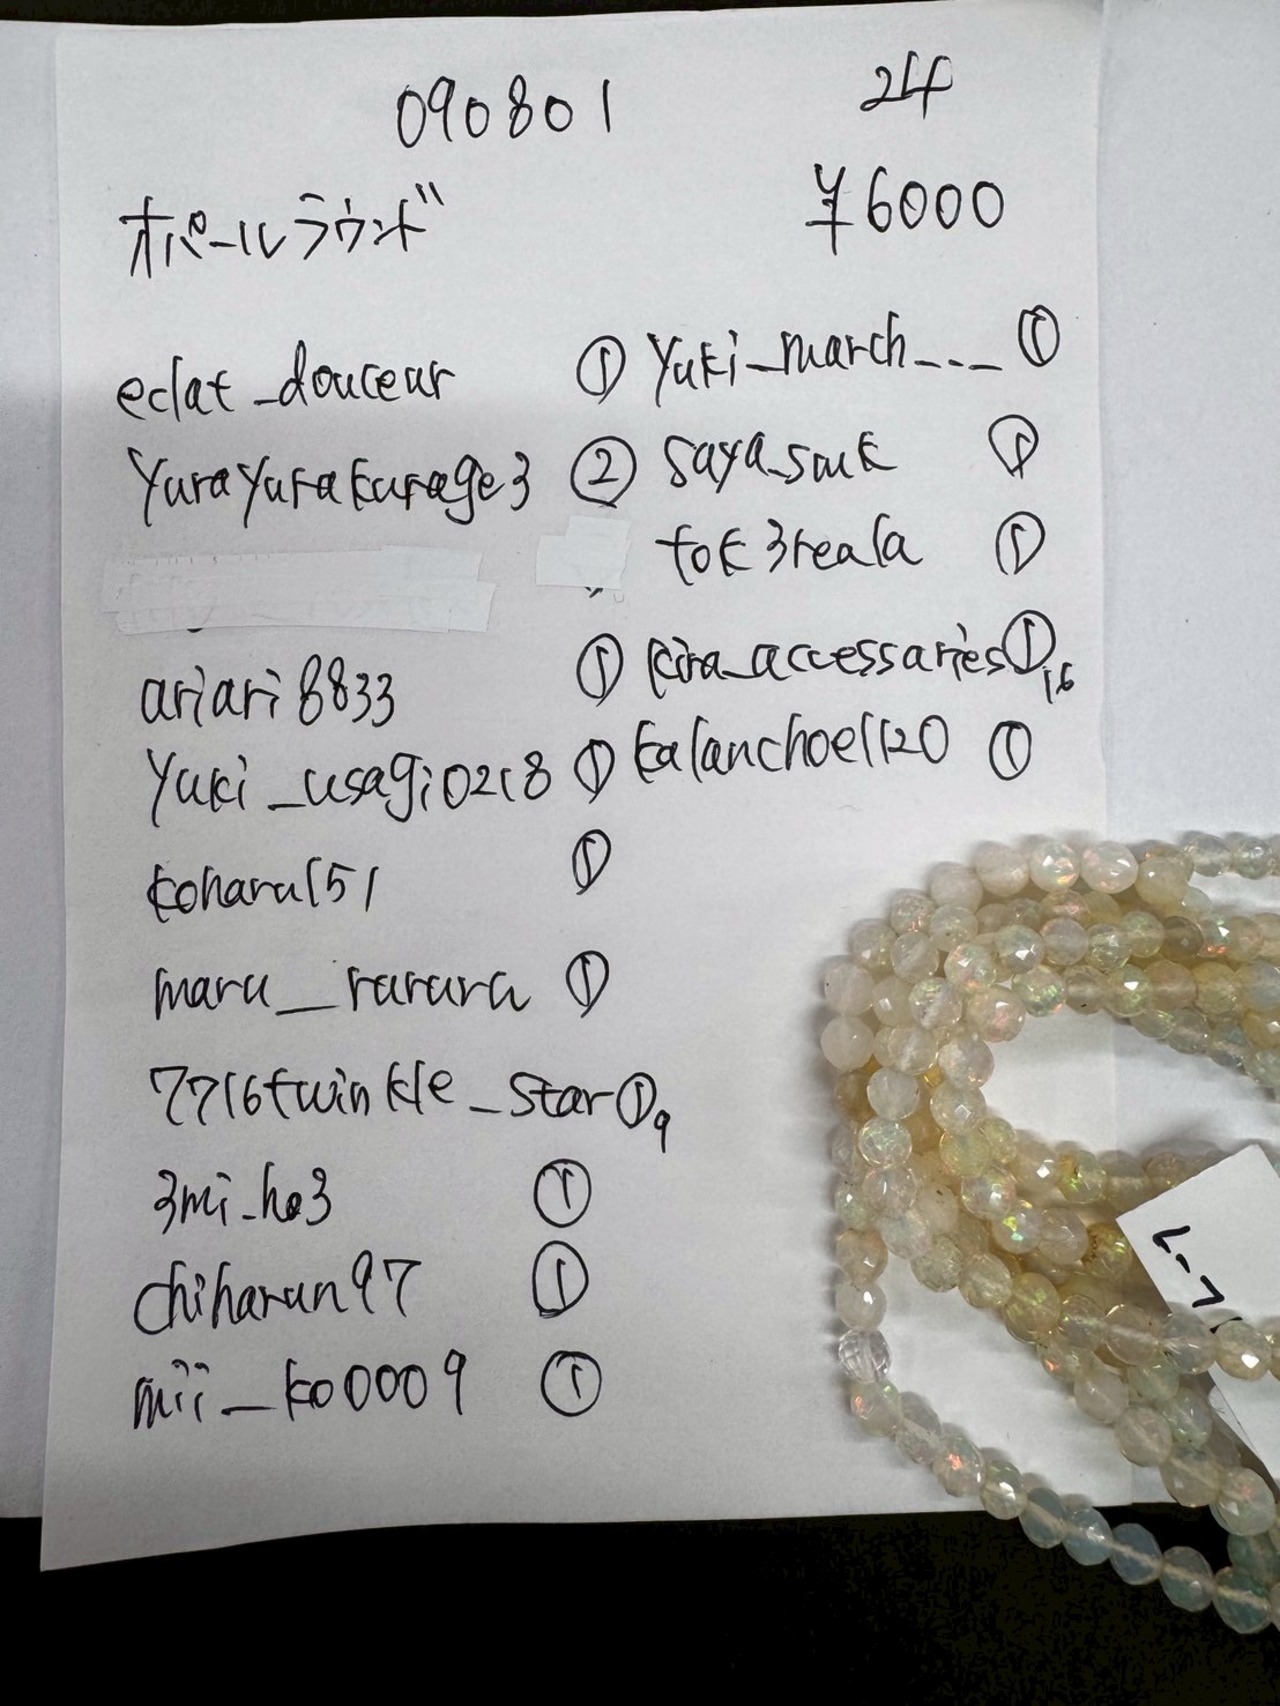 090801
24
オパールラウンド
¥6000
eclat_douceur ①
yurayurakurage3 ②
ariari8833 ①
yuki_usagi0218 ①
koharu151 ①
maru__rarara ①
7716twinkle_star ① 9
3mi_ho3 ①
chiharun97 ①
mii_ko0009 ①
yuki_march___ ①
saya_souk ①
tok3reala ①
kira_accessaries ① 16
kalanchoe1120 ①